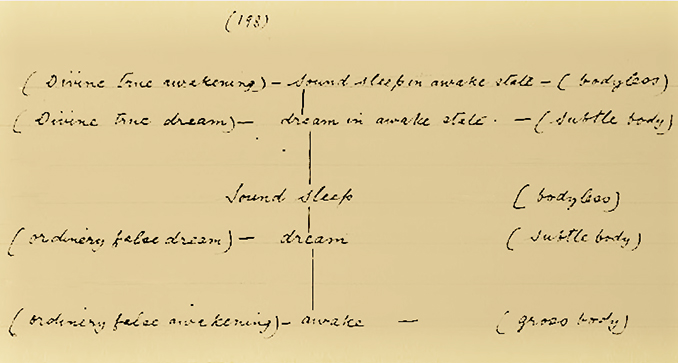 (198)
(Divine true awakening) – sound sleep in awake state – (bodyless)
(Divine true dream) – dream in awake state. – (subtle body)
Sound sleep (bodyless)
(ordinery false dream) – dream (subtle body)
(ordinery false awakening) – awake – (gross body)